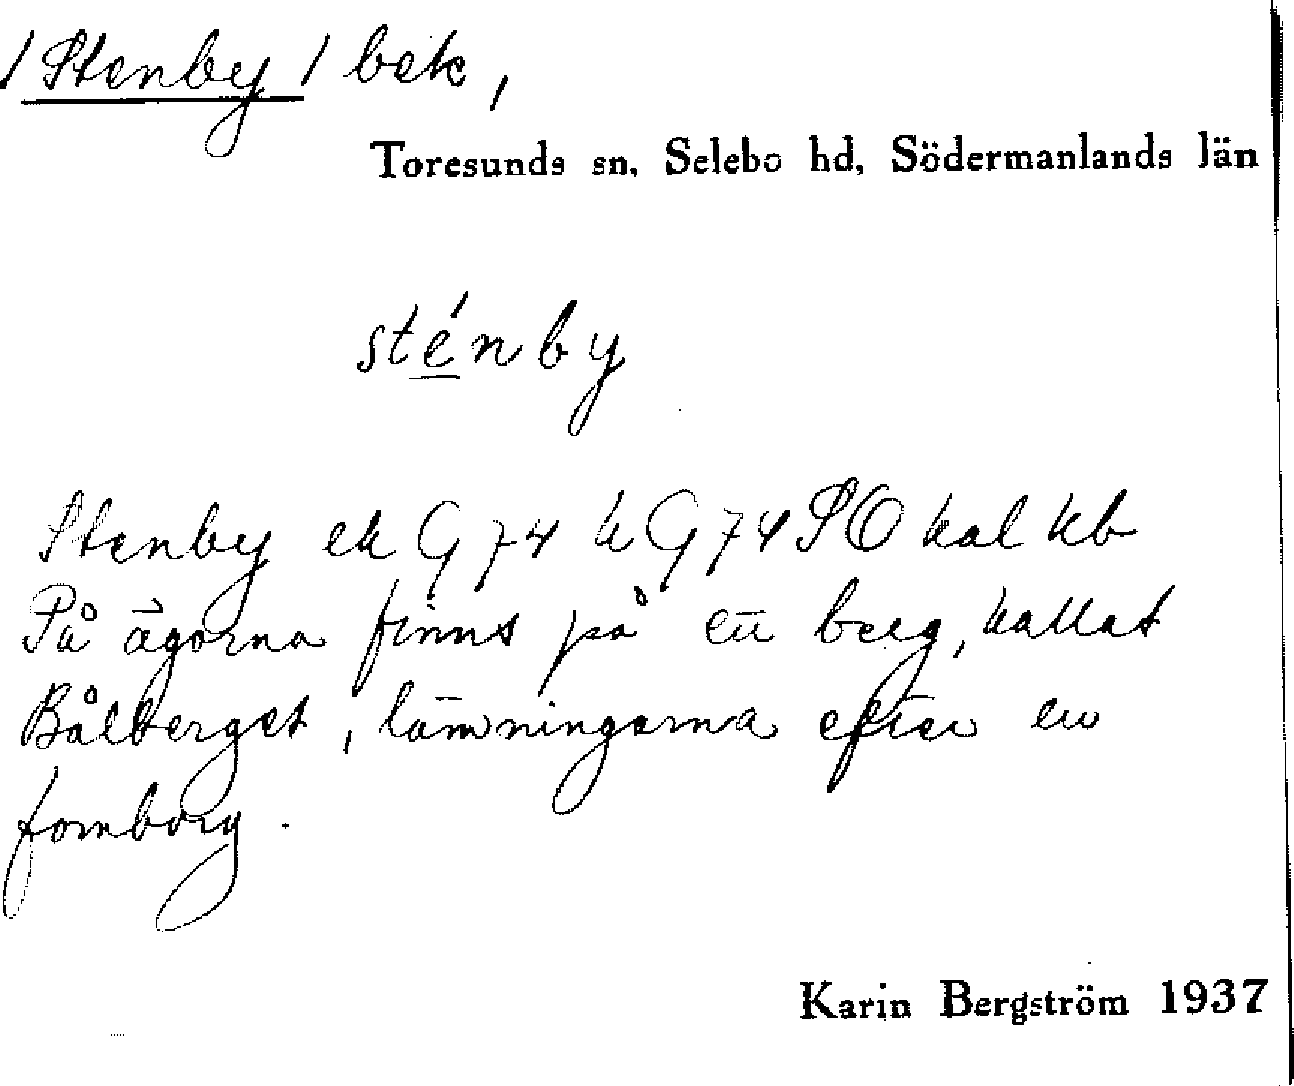 /Stenby/ bek,
Toresunds sn, Selebo hd, Södermanlands län
sténby
Stenby ek G 74 k G 74 SO kal kb
På ägorna finns på ett berg, kallat
Bålberget, lämningarna efter en
fornborg.
Karin Bergström 1937